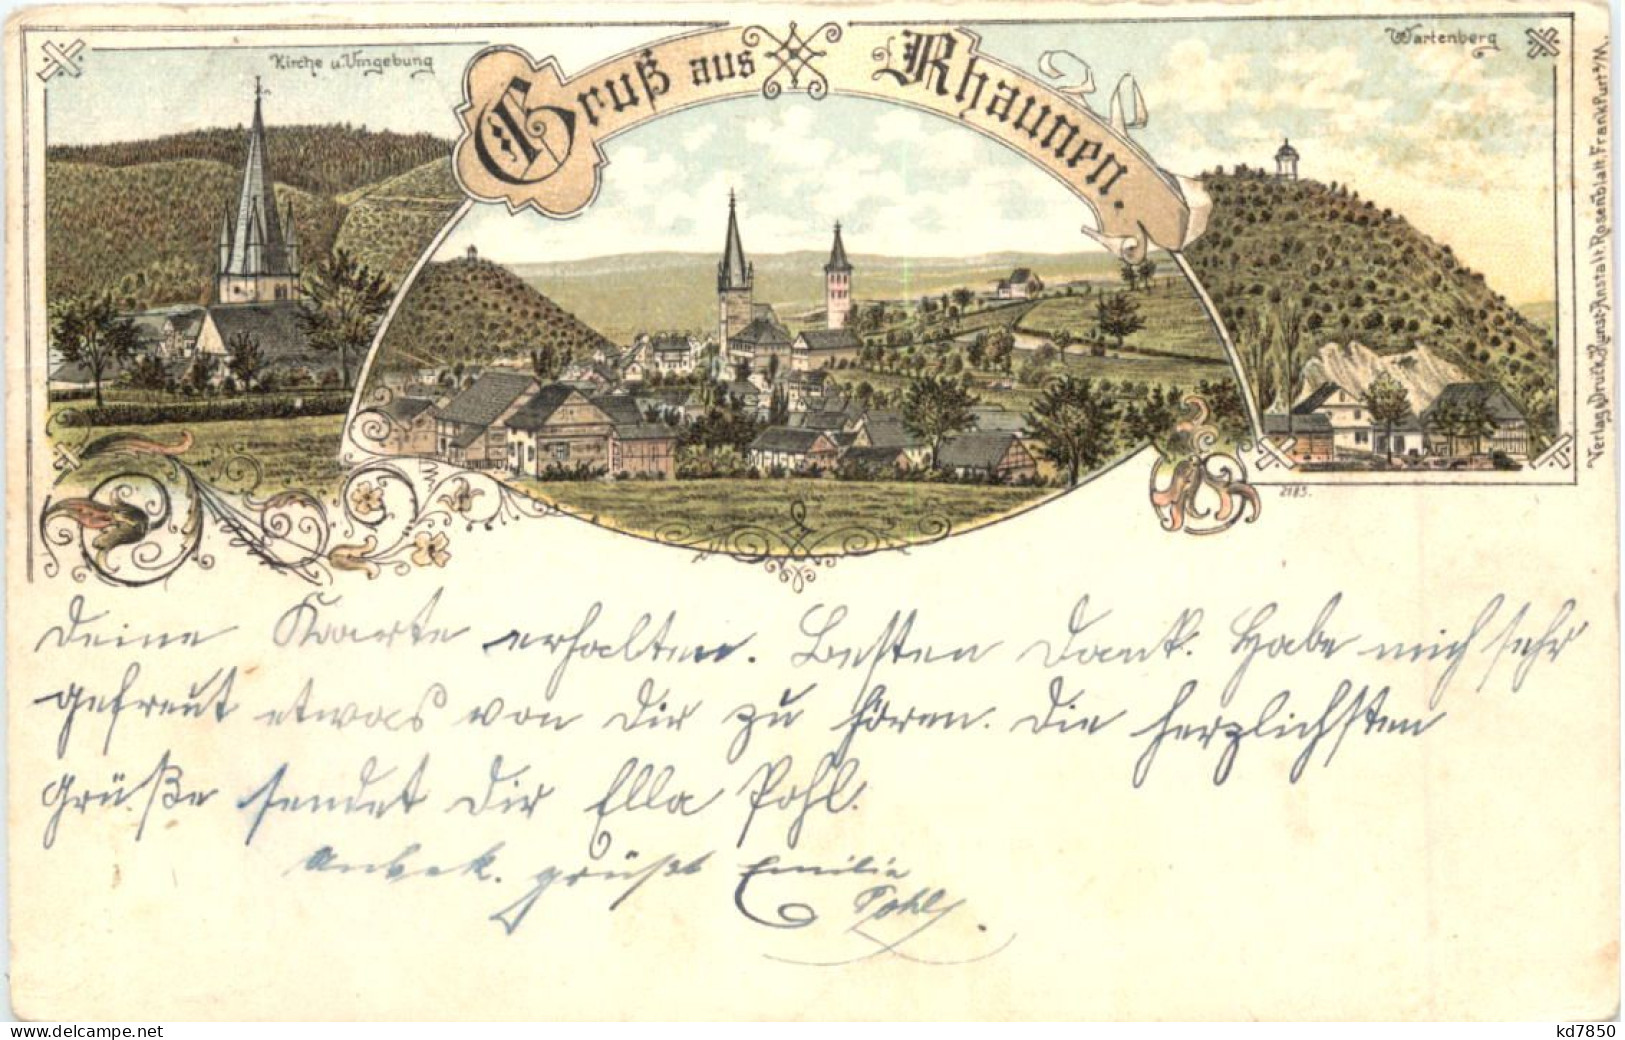 Kirche u. Umgebung
Gruß aus Rhaunen.
Wartenberg
Verlag Druck Kunst-Anstalt Rosenblatt, Frankfurt a/M.
2185.
Deine Kaarte erhalten. Besten Dank. Habe mich sehr
gefreut etwas von Dir zu hören. Die herzlichsten
Grüße sendet Dir Ella Pohl.
Unbek. grüßt Emilie
Pohl.
www.delcampe.net
kd7850